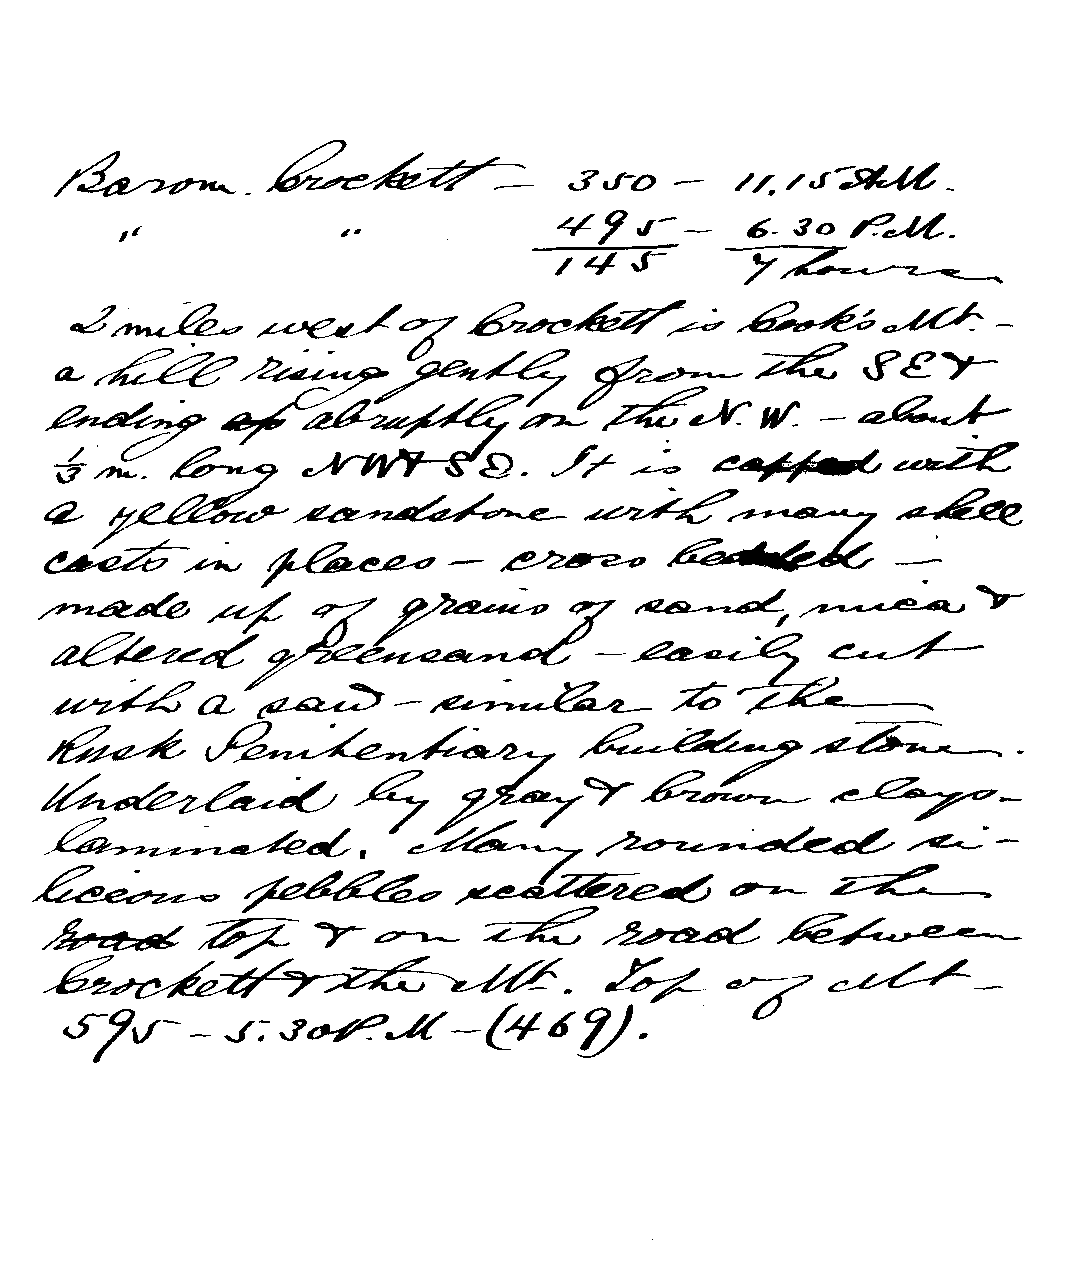 Barom. Crockett — 350 — 11.15 A.M.
" " 495 — 6.30 P.M.
145 7 hours
2 miles west of Crockett is Cook's Mt. —
a hill rising gently from the SE &
ending abruptly on the N.W. — about
1/3 m. long NW & SE. It is capped with
a yellow sandstone with many shell
casts in places — cross bedded —
made up of grains of sand, mica &
altered greensand — easily cut
with a saw — similar to the
Rusk Penitentiary building stone.
Underlaid by gray & brown clays —
laminated. Many rounded si-
liceous pebbles scattered on the
road top & on the road between
Crockett & the Mt. Top of Mt —
595 — 5.30 P.M — (469).